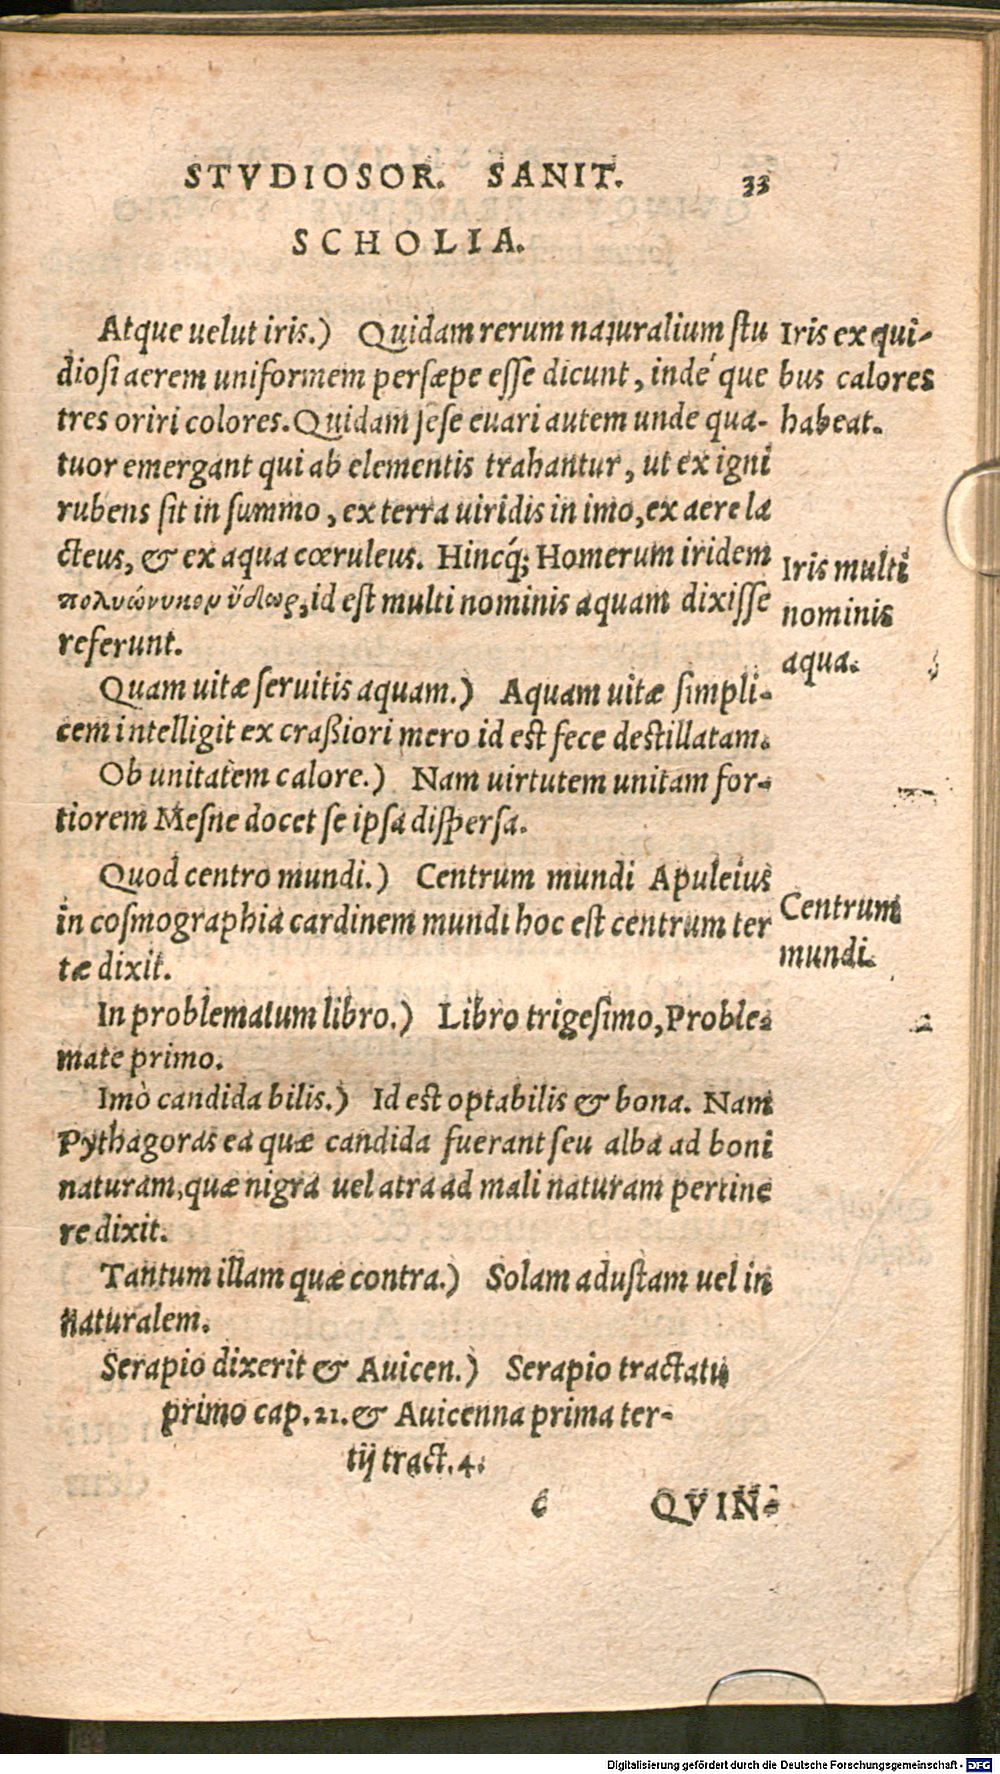 STVDIOSOR. SANIT. 33
SCHOLIA.
Atque uelut iris.) Quidam rerum naturalium stu
diosi aerem uniformem persæpe esse dicunt, indé que
tres oriri colores. Quidam sese euari autem unde qua-
tuor emergant qui ab elementis trahantur, ut ex igni
rubens sit in summo, ex terra uiridis in imo, ex aere la
cteus, & ex aqua cœruleus. Hincq́; Homerum iridem
πολυώνυμον ὕδωρ, id est multi nominis aquam dixisse
referunt.
Quam uitæ seruitis aquam.) Aquam uitæ simpli-
cem intelligit ex craßiori mero id est fece destillatam.
Ob unitatem calore.) Nam uirtutem unitam for-
tiorem Mesne docet se ipsa dispersa.
Quod centro mundi.) Centrum mundi Apuleius
in cosmographia cardinem mundi hoc est centrum ter
tæ dixit.
In problematum libro.) Libro trigesimo, Proble-
mate primo.
Imò candida bilis.) Id est optabilis & bona. Nam
Pythagoras ea quæ candida fuerant seu alba ad boni
naturam, quæ nigra uel atra ad mali naturam pertine
re dixit.
Tantum illam quæ contra.) Solam adustam uel in
naturalem.
Serapio dixerit & Auicen.) Serapio tractatu
primo cap. 21. & Auicenna prima ter-
tij tract. 4.
c QVIN-
Iris ex qui-
bus calores
habeat.
Iris multi
nominis
aqua.
Centrum
mundi.
Digitalisierung gefördert durch die Deutsche Forschungsgemeinschaft - DFG